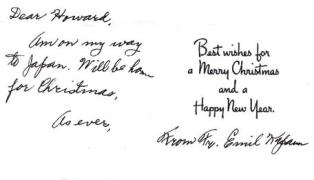 Dear Howard,
Am on my way
to Japan. Will be home
for Christmas,
As ever,
Best wishes for
a Merry Christmas
and a
Happy New Year.
From Fr. Emil